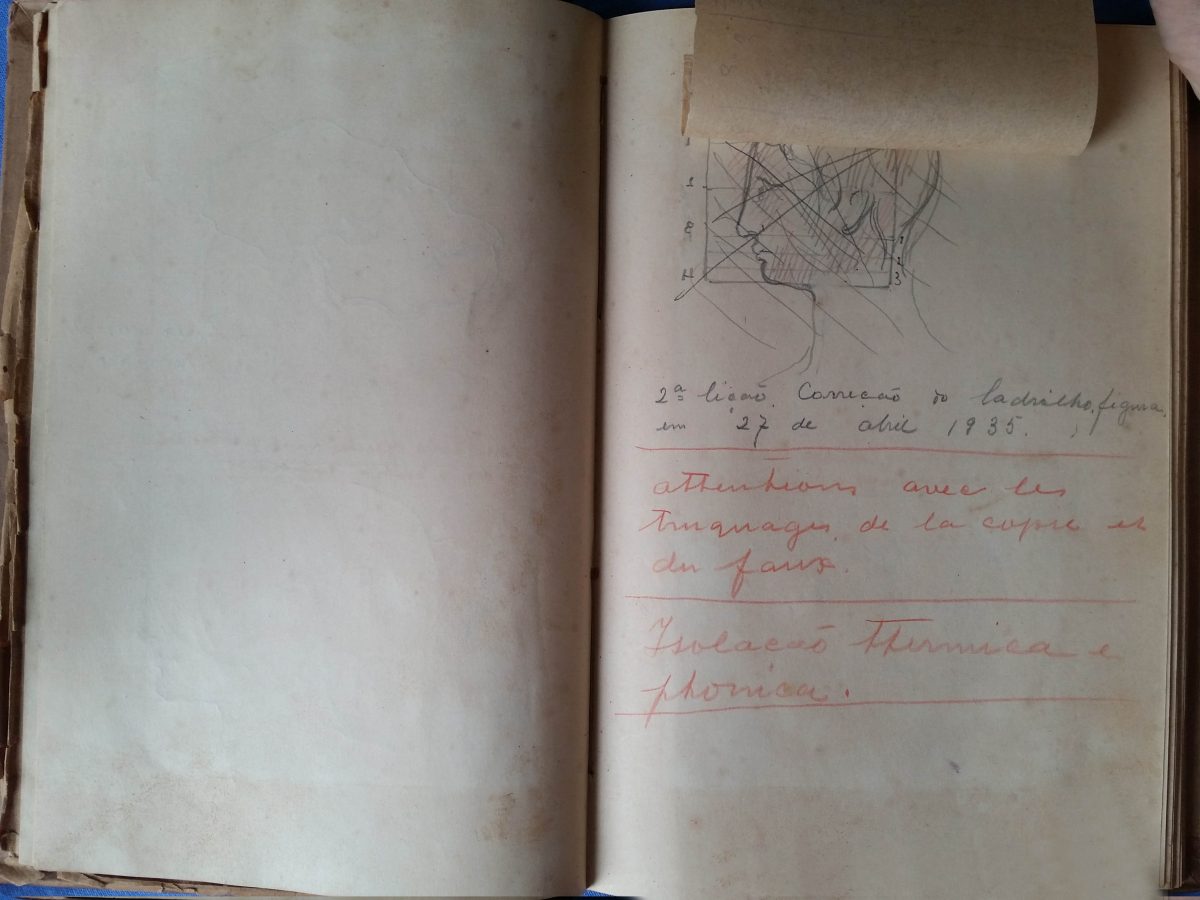 1
2
H
1
2
3
2ª lição. Correcão do ladrilho, figura.
em 27 de abril 1935.
attentions avec les
truquages de la copie et
du faux.
Isolacaõ thermica e
phonica.